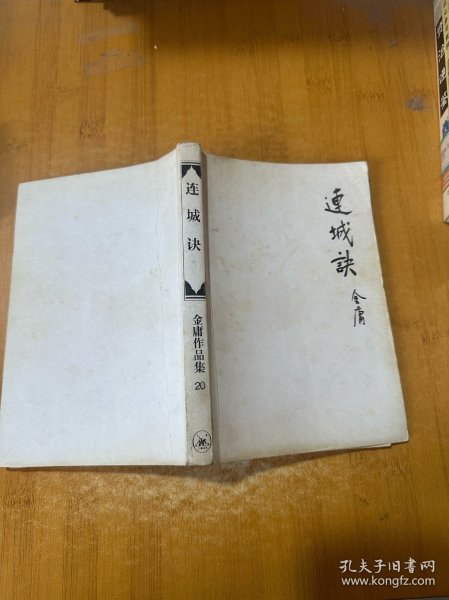 连城诀
金庸作品集
20
連城訣
金庸
孔夫子旧书网
www.kongfz.com